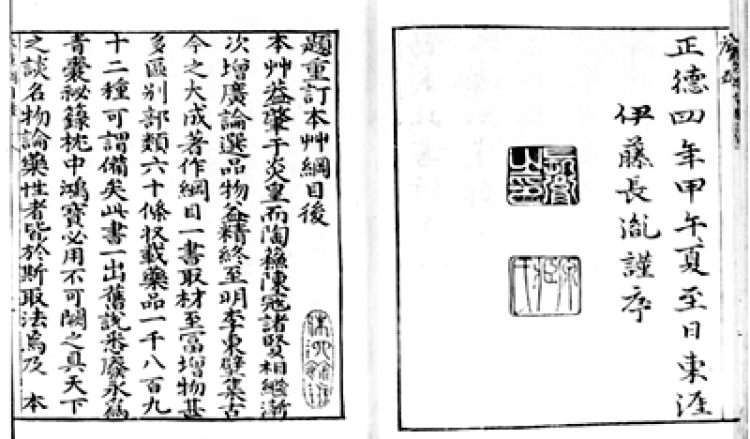 正德四年甲午夏至日東涯
伊藤長胤謹序
題重訂本艸綱目後
本艸盖肇于炎皇而陶蘇陳寇諸賢相繼漸
次增廣論選品物益精終至明李東壁集古
今之大成著作綱目一書取材至富增物甚
多區別部類六十條收載藥品一千八百九
十二種可謂備矣此書一出舊說悉廢永爲
青囊秘錄枕中鴻寶必用不可闕之具天下
之談名物論藥性者皆於斯取法焉及 本